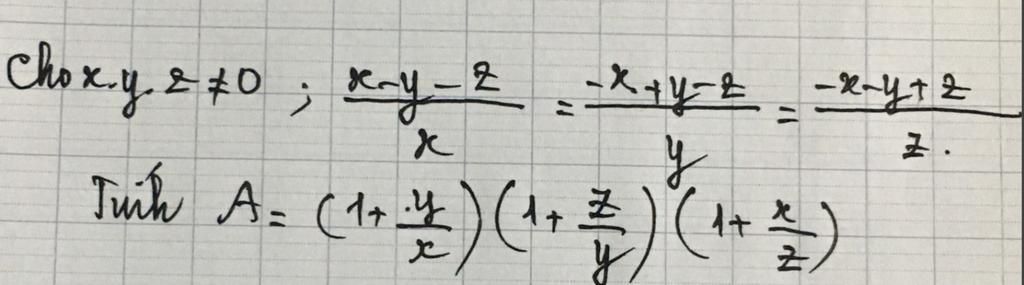 Cho x.y.z ≠ 0 ; (x-y-z)/x = (-x+y-z)/y = (-x-y+z)/z.
Tính A = (1+ y/x)(1+ z/y)(1+ x/z)